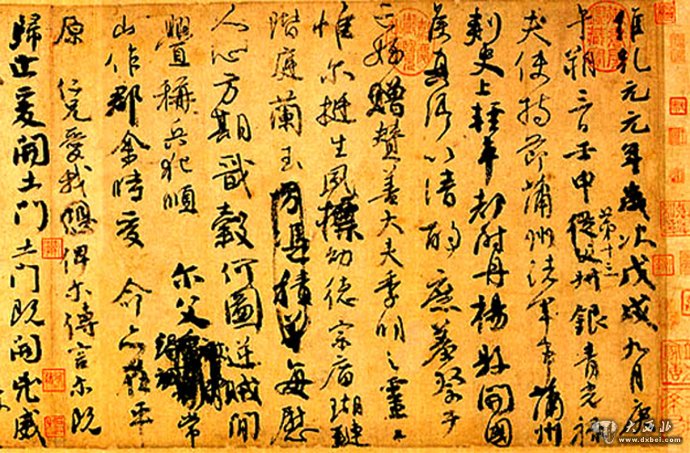 維乾元元年歲次戊戌九月庚
午朔三日壬申第十三從父叔銀青光祿
夫使持節蒲州諸軍事蒲州
刺史上輕車都尉丹楊縣開國
侯真卿以清酌庶羞祭于
亡姪贈贊善大夫季明之靈曰
惟爾挺生夙標幼德宗廟瑚璉
階庭蘭玉方憑積善每慰
人心方期戩穀何圖逆賊閒
釁稱兵犯順爾父竭誠常
山作郡余時受命亦在平
原仁兄愛我俾爾傳言爾既
歸止爰開土門土門既開凶威
www.dxbei.com